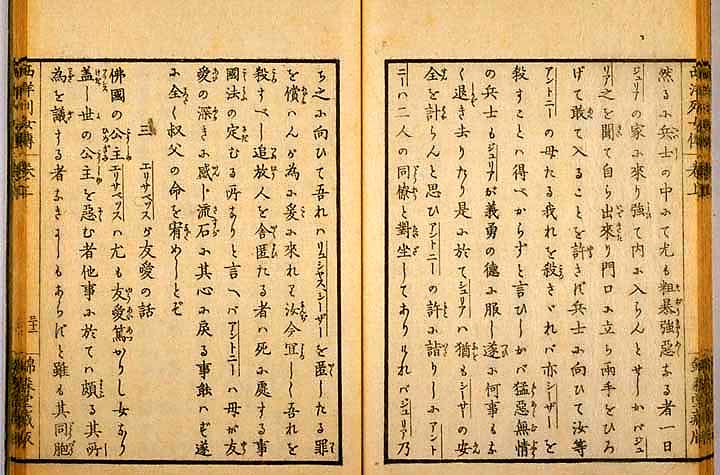 然るに兵士の中にて尤も粗暴強惡なる者一日
ジュリアの家に來り強て内に入らんとせしかバジュ
リア之を聞て自ら出來り門口に立ち兩手をひろ
げて敢て入ることを許さず兵士に向ひて汝等
アントニーの母たる我れを殺さゞれバ亦シーザーを
殺すことハ得べからずと言ひしかバ猛惡無情
の兵士もジュリアが義勇の德に服し遂に何事もな
く退き去りたり是に於てジュリアハ猶もシーザの安
全を計らんと思ひアントニーの許に詣りしにアント
ニーハ二人の同僚と對坐してありけれバジュリア乃
ち之に向ひて吾れハリュシヤスシーザーを匿したる罪
を償ハんが爲に爰に來れり汝今宜しく吾れを
殺すべし追放人を舍匿たる者ハ死に處する事
國法の定むる所なりと言へバアントニーハ母が友
愛の深きに感じ流石に其心に戻る事能ハず遂
に全く叔父の命を宥めしとぞ
三 エリサベッスが友愛の話
佛國の公主エリサベッスハ尤も友愛篤かりし女なり
蓋し世の公主を惡む者他事に於てハ頗る其所
為を議する者なきにしもあらずと雖も其同胞
西洋列女傳 卷上
錦森堂藏版